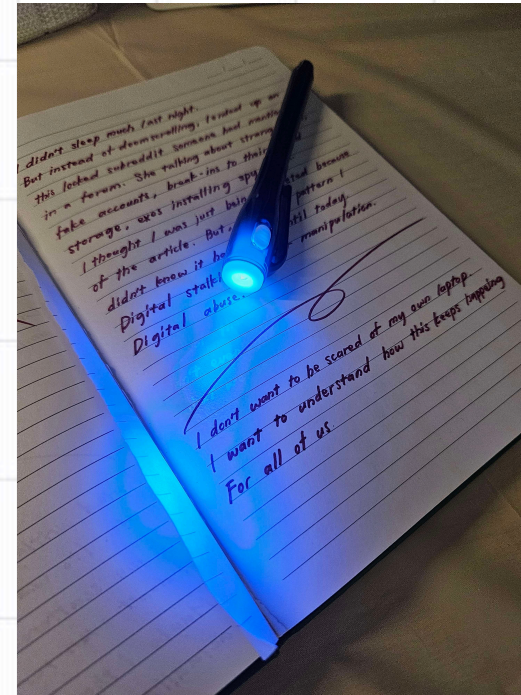 I didn't sleep much last night.
But instead of doomscrolling, I ended up on
this locked subreddit someone had
in a forum. She talking about
fake accounts, break-ins to their
storage, exes installing spy
I thought I was just being because
of the article. But, pattern I
didn't know it until today.
Digital manipulation.
Digital abuse.
I don't want to be scared of my own laptop.
I want to understand how this keeps happening
For all of us